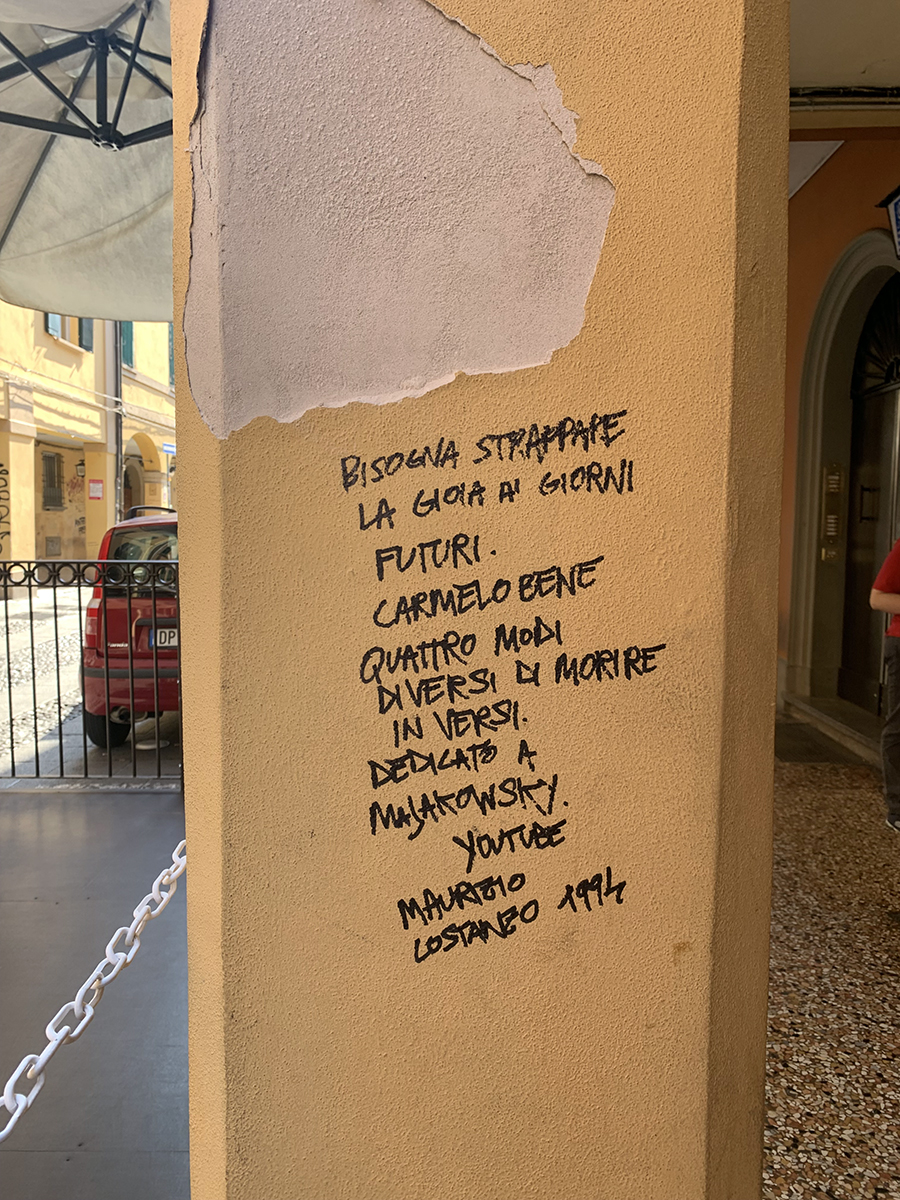 BISOGNA STRAPPARE
LA GIOIA AI GIORNI
FUTURI.
CARMELO BENE
QUATTRO MODI
DIVERSI DI MORIRE
IN VERSI.
DEDICATO A
MAJAKOWSKY.
YOUTUBE
MAURIZIO
COSTANZO 1994
DP